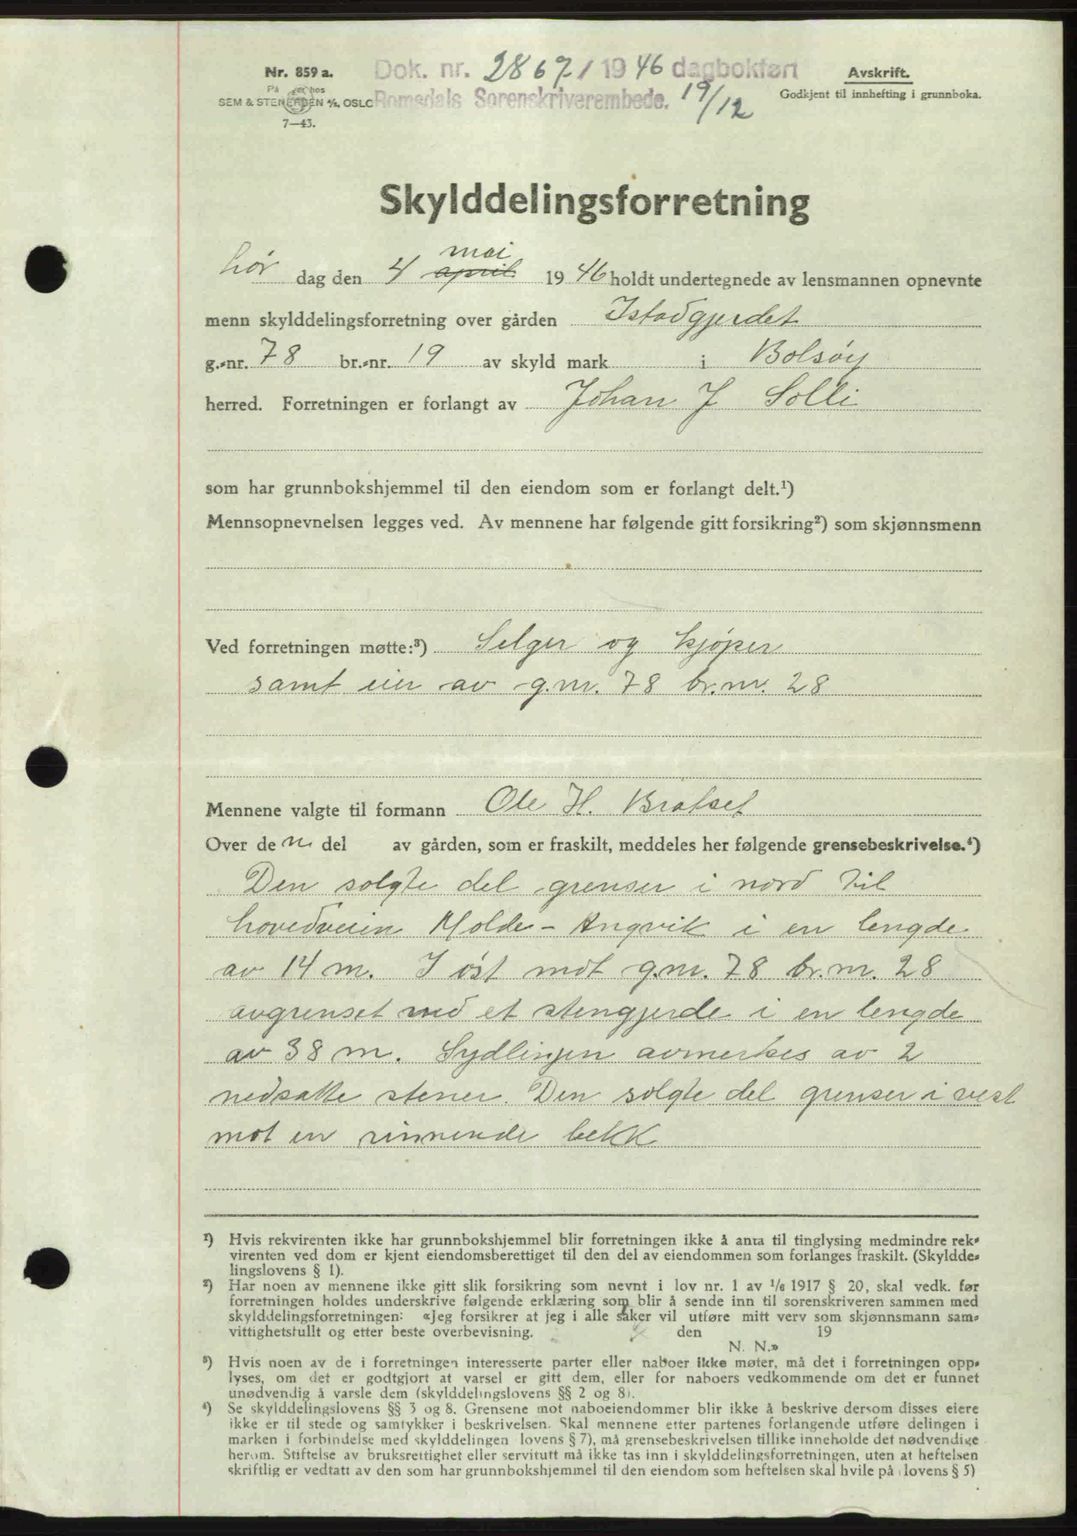 Nr. 859 a.
På hos
SEM & STENERSEN A/S, OSLO
7—43.
Dok. nr. 2867/1946 dagbokført
Romsdals Sorenskriverembede. 19/12
Avskrift.
Godkjent til innhefting i grunnboka.
Skylddelingsforretning
mai
Lør dag den 4 april 1946 holdt undertegnede av lensmannen opnevnte
menn skylddelingsforretning over gården Istadgjerdet
g.-nr. 78 br.-nr. 19 av skyld mark i Bolsøy
herred. Forretningen er forlangt av Johan J Solli
som har grunnbokshjemmel til den eiendom som er forlangt delt.¹)
Mennsopnevnelsen legges ved. Av mennene har følgende gitt forsikring²) som skjønnsmenn
Ved forretningen møtte:³) Selger og kjøper
samt eier av g.nr. 78 br.nr. 28
Mennene valgte til formann Ole H. Bratset
Over den del av gården, som er fraskilt, meddeles her følgende grensebeskrivelse.⁴)
Den solgte del grenser i nord til
hovedveien Molde – Angvik i en lengde
av 14 m. I øst mot g.nr. 78 br.nr. 28
avgrenset ved et stengjerde i en lengde
av 38 m. Sydlinjen avmerkes av 2
nedsatte stener. Den solgte del grenser i vest
mot en rinnende bekk
¹) Hvis rekvirenten ikke har grunnbokshjemmel blir forretningen ikke å anta til tinglysing medmindre rek-
virenten ved dom er kjent eiendomsberettiget til den del av eiendommen som forlanges fraskilt. (Skyldde-
lingslovens § 1).
²) Har noen av mennene ikke gitt slik forsikring som nevnt i lov nr. 1 av 1/6 1917 § 20, skal vedk. før
forretningen holdes underskrive følgende erklæring som blir å sende inn til sorenskriveren sammen med
skylddelingsforretningen: «Jeg forsikrer at jeg i alle saker vil utføre mitt verv som skjønnsmann sam-
vittighetsfullt og etter beste overbevisning. den 19
N. N.»
³) Hvis noen av de i forretningen interesserte parter eller naboer ikke møter, må det i forretningen opp-
lyses, om det er godtgjort at varsel er gitt dem, eller for naboers vedkommende om det er funnet
unødvendig å varsle dem (skylddelingslovens §§ 2 og 8).
⁴) Se skylddelingslovens §§ 3 og 8. Grensene mot naboeiendommer blir ikke å beskrive dersom disses eiere
ikke er til stede og samtykker i beskrivelsen. Skal mennene etter partenes forlangende utføre delingen i
marken i forbindelse med skylddelingen lovens § 7), må grensebeskrivelsen tillike inneholde det nødvendige
herom. Stiftelse av bruksrettighet eller servitutt må ikke tas inn i skylddelingsforretningen, uten at heftelsen
skriftlig er vedtatt av den som har grunnbokshjemmel til den eiendom som heftelsen skal hvile på lovens § 5)